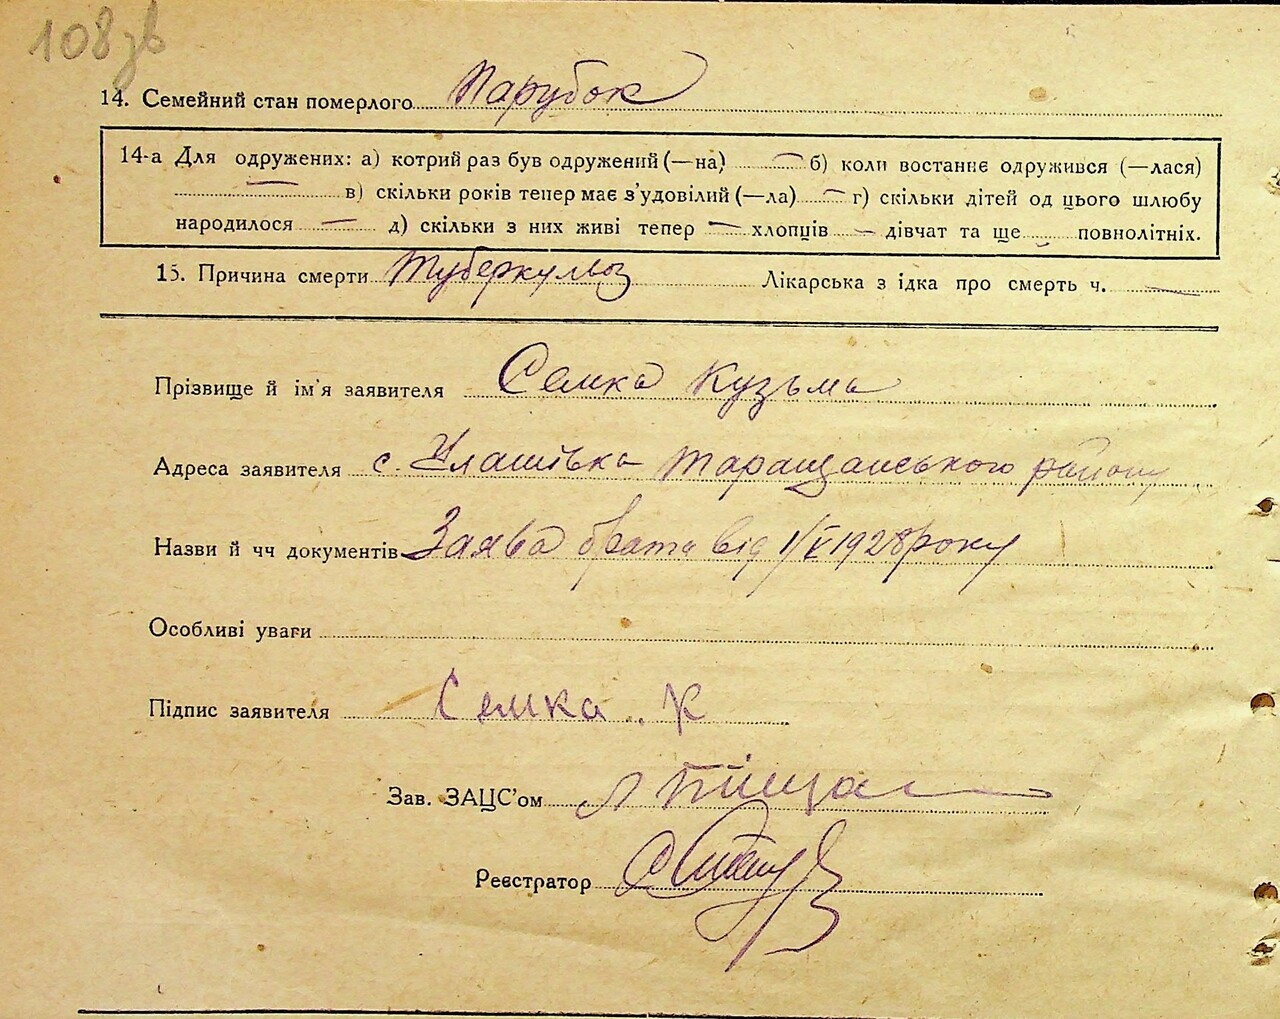 108 зв
14. Семейний стан померлого Парубок
14-а Для одружених: а) котрий раз був одружений (—на) — б) коли востаннє одружився (—лася)
— в) скільки років тепер має з'удовілий (—ла) — г) скільки дітей од цього шлюбу
народилося — д) скільки з них живі тепер — хлопців — дівчат та ще — повнолітніх.
15. Причина смерти Туберкульоз Лікарська з ідка про смерть ч. —
Прізвище й ім'я заявителя Семка Кузьма
Адреса заявителя с. Улашівка Таращанського району
Назви й чч документів Заява брата від 1/V 1928 року
Особливі уваги
Підпис заявителя Семка К
Зав. ЗАЦС'ом
Реєстратор